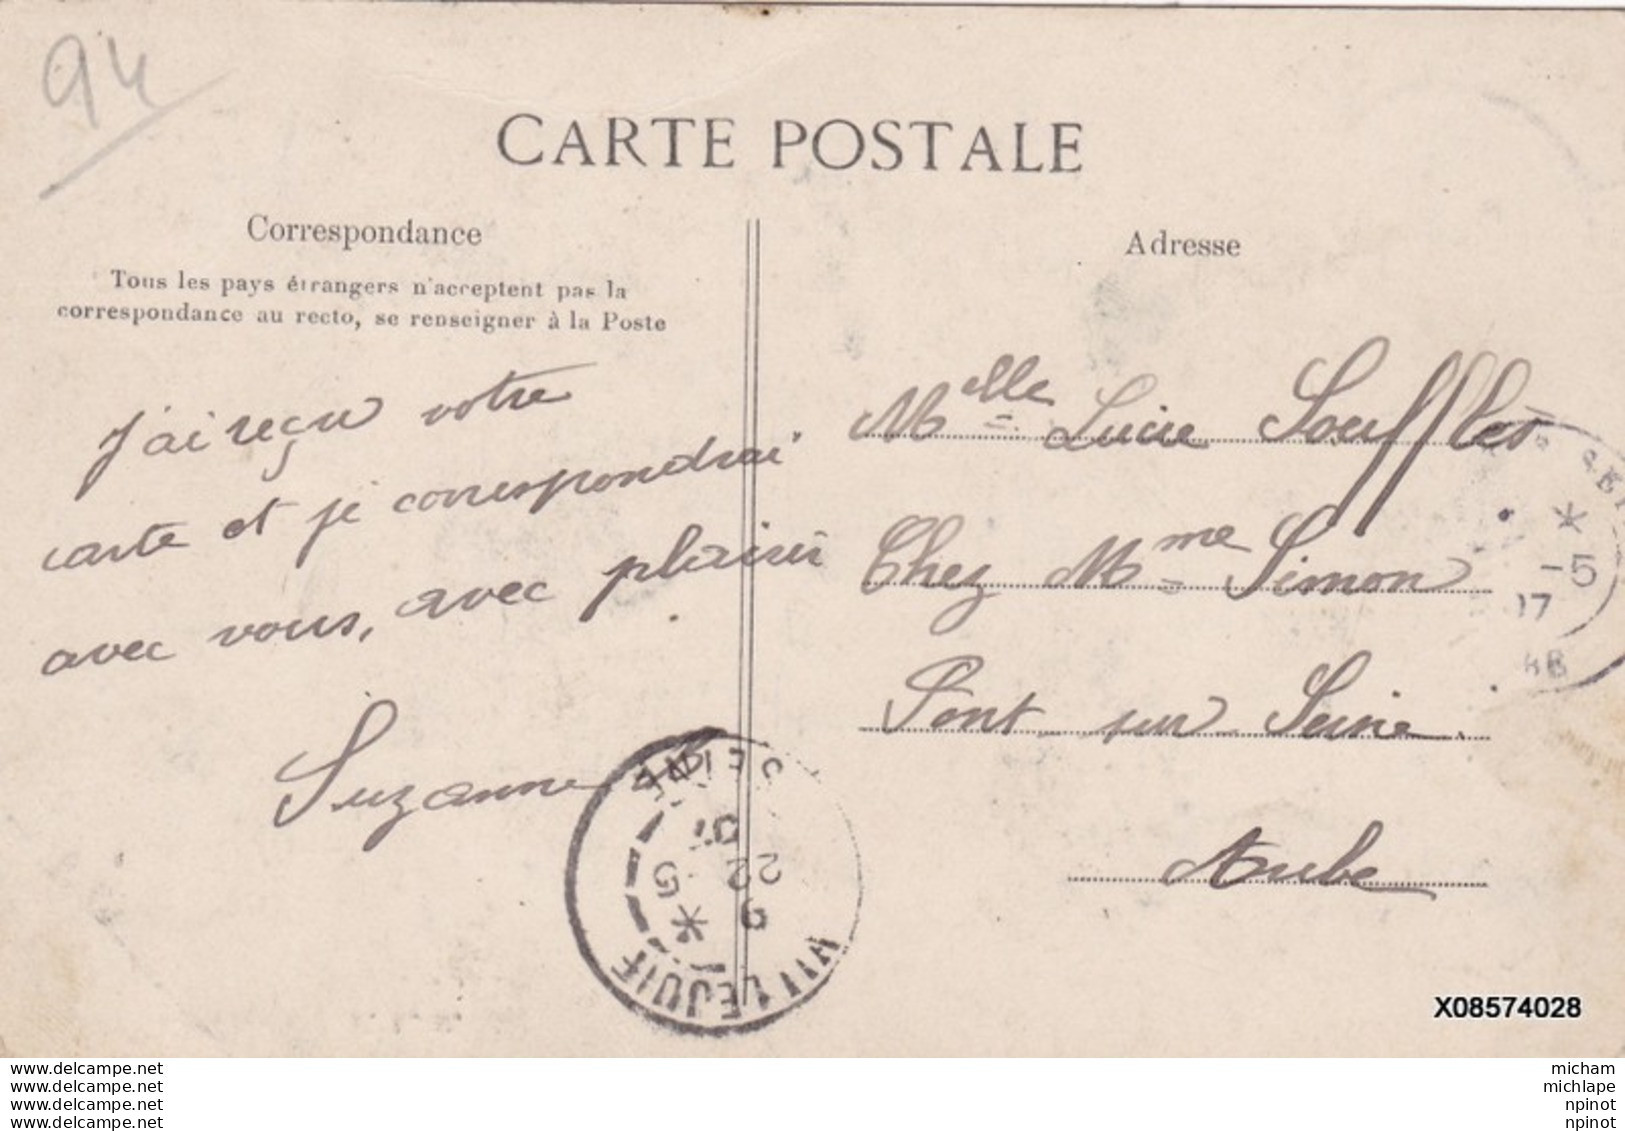 94
CARTE POSTALE
Correspondance
Tous les pays étrangers n'acceptent pas la
correspondance au recto, se renseigner à la Poste
J'ai reçu votre
carte et je correspondrai
avec vous, avec plaisir
Suzanne
Adresse
Melle Lucie Souffles
Chez Mme Simon
Pont sur Seine.
Aube
* -5
17
VILLEJUIF
* 5
9
22
SEINE
X08574028
www.delcampe.net
www.delcampe.net
www.delcampe.net
www.delcampe.net
micham
michlape
npinot
npinot